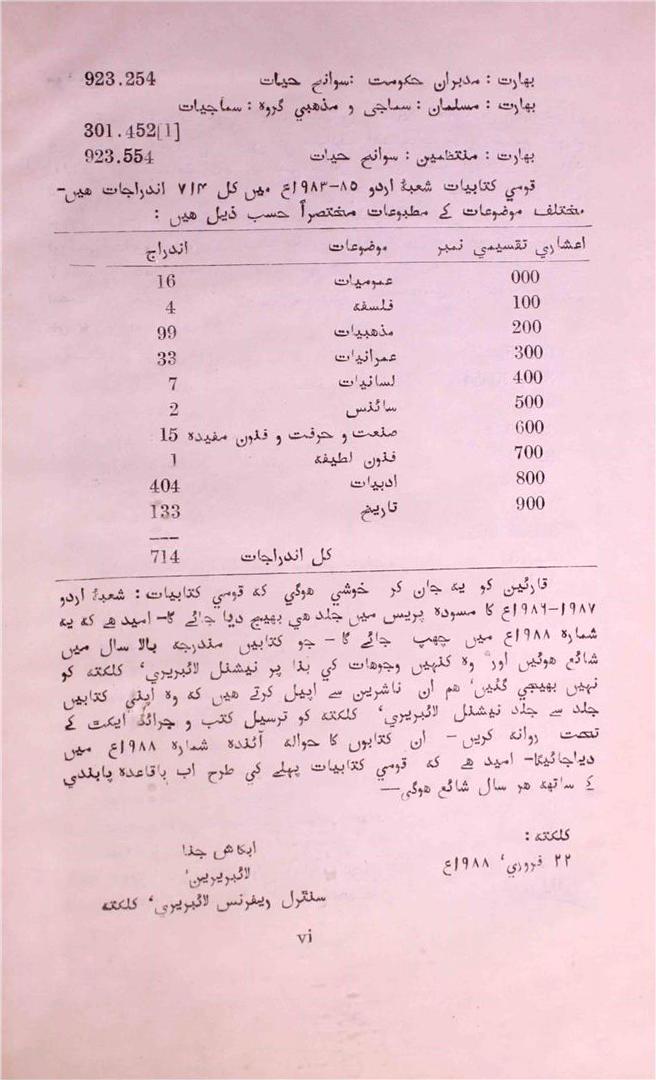 بھارت : مدبران حکومت : سوانح حیات 923.254
بھارت : مسلمان : سماجی و مذھبی گروہ : سماجیات
301.452[1]
بھارت : منتظمین : سوانح حیات 923.554
قومی کتابیات شعبۂ اردو ۸۵-۱۹۸۳ع میں کل ۷۱۴ اندراجات ھیں-
مختلف موضوعات کے مطبوعات مختصراً حسب ذیل ھیں :
اعشاری تقسیمی نمبر موضوعات اندراج
000 عمومیات 16
100 فلسفہ 4
200 مذھبیات 99
300 عمرانیات 33
400 لسانیات 7
500 سائنس 2
600 صنعت و حرفت و فنون مفیدہ 15
700 فنون لطیفہ 1
800 ادبیات 404
900 تاریخ 133
کل اندراجات 714
قارئین کو یہ جان کر خوشی ھوگی کہ قومی کتابیات : شعبۂ اردو
۱۹۸۷-۱۹۸۶ع کا مسودہ پریس میں جلد ھی بھیج دیا جائے گا- امید ھے کہ یہ
شمارہ ۱۹۸۸ع میں چھپ جائے گا - جو کتابیں مندرجہ بالا سال میں
شائع ھوئیں اور وہ کنہیں وجوھات کی بنا پر نیشنل لائبریری، کلکتہ کو
نہیں بھیجی گئیں، ھم ان ناشرین سے اپیل کرتے ھیں کہ وہ اپنی کتابیں
جلد سے جلد نیشنل لائبریری، کلکتہ کو ترسیل کتب و جرائد ایکٹ کے
تحت روانہ کریں- ان کتابوں کا حوالہ آئندہ شمارہ ۱۹۸۸ع میں
دیاجائیگا- امید ھے کہ قومی کتابیات پہلے کی طرح اب باقاعدہ پابندی
کے ساتھ ھر سال شائع ھوگی—
کلکتہ :
۲۲ فروری، ۱۹۸۸ع
لائبریرین،
سنٹرل ریفرنس لائبریری، کلکتہ
vi